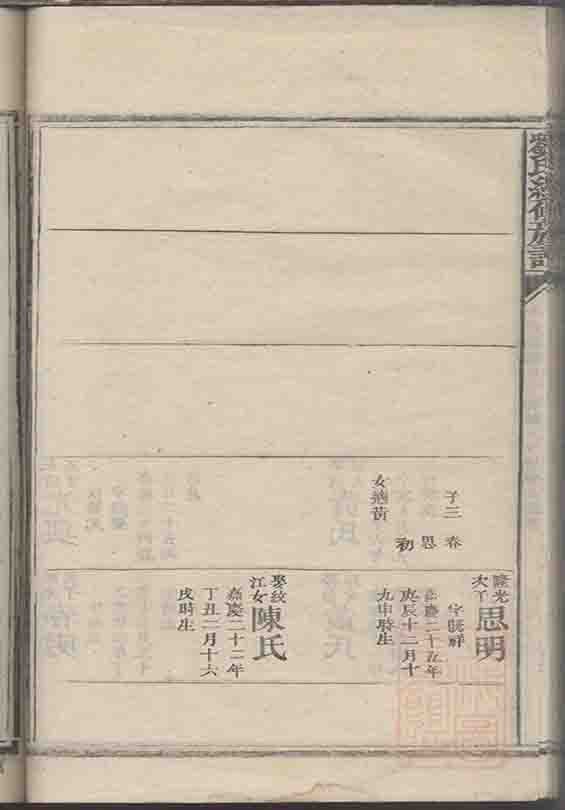 劉氏續修族譜
子三 春
思
初
女適黃
隆光
大丁
思明
嘉慶二十五年
庚辰十二月十
九申時生
娶紋
江女
陳氏
嘉慶二十二年
丁丑二月十六
戌時生